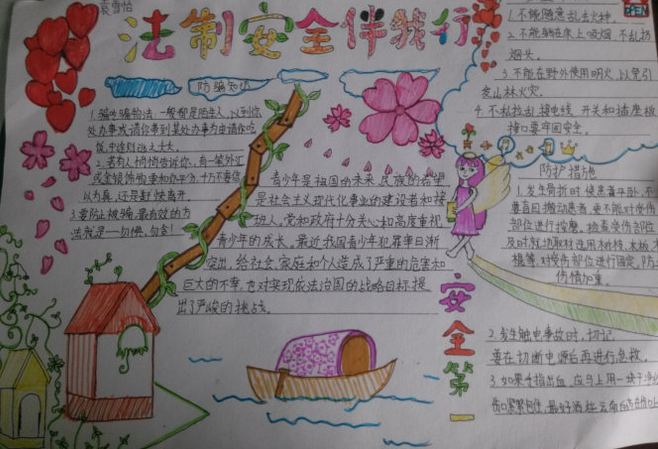 袁雪怡
法制安全伴我行
OPEN
1.不能随意乱丢火种。
2.不能躺在床上吸烟,不乱扔
烟头。
3.不能在野外使用明火,以免引
发山林火灾。
4.不私拉乱接电线,开关和插座板
接口要牢固安全。
防骗知识
1.骗吃骗抢法:一般都是陌生人,以到你
处办事或请你
饭
2.若有人悄悄告诉你,有一笔外汇
或金银饰物要和你平分,千万不要信
以为真,还是赶快离开。
3.要防止被骗,最有效的方
法就是一句偈,勿贪!
青少年是祖国的未来,民族的希望
是社会主义现代化事业的建设者和接
班人,党和政府十分关心和高度重视
青少年的成长。最近我国青少年犯罪率日渐
突出,给社会、家庭和个人造成了严重的危害和
巨大的不幸,也对实现依法治国的战略目标提
出了严峻的挑战。
安全第一
防护措施
1.发生骨折时,使患者平卧,不
要盲目搬动患者,更不能对受伤
部位进行按摩。检查受伤部位
及时就地取材选用树枝、木板、木
棍等,对受伤部位进行固定,防止
伤情加重。
2.发生触电事故时,切记
要在切断电源后再进行急救。
3.如果手指出血,应马上用一块干净的
伤口紧紧包住,最好洒些云南白药在伤口上